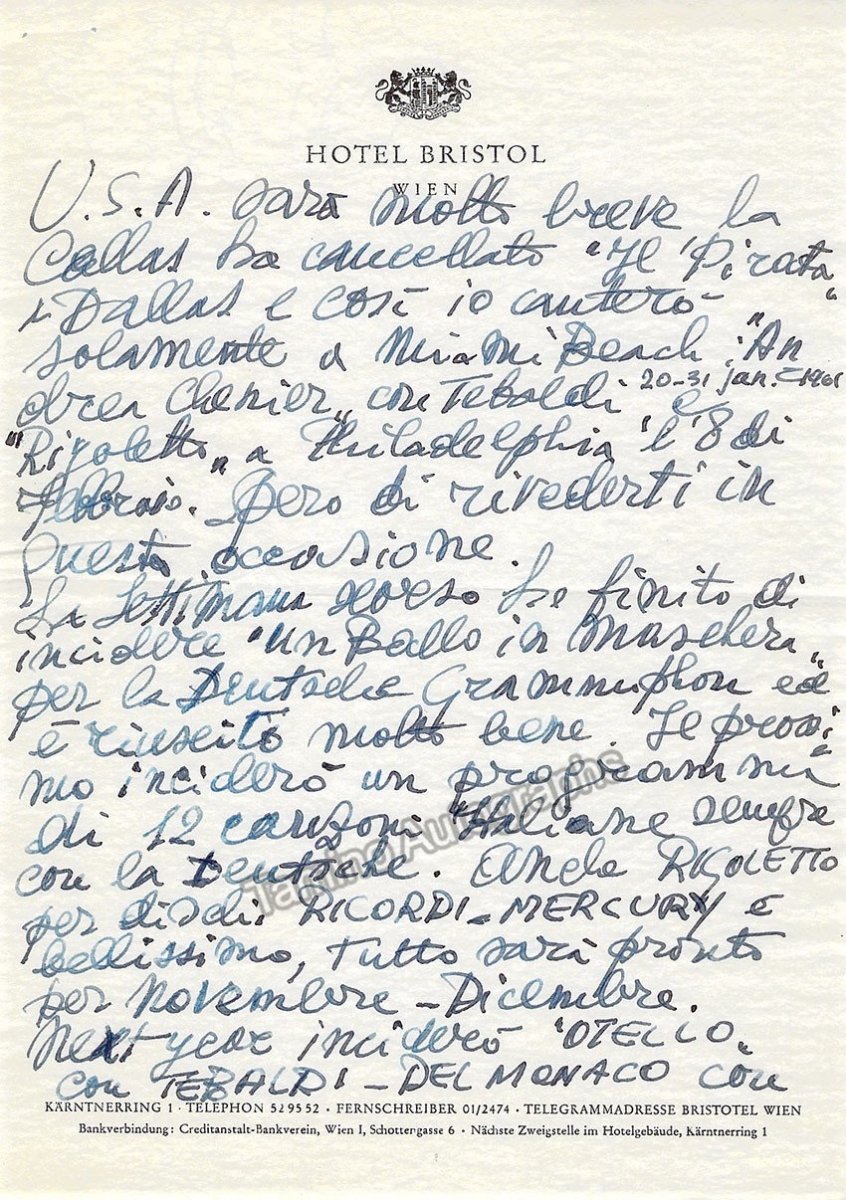 HOTEL BRISTOL
WIEN
U.S.A. sarà molto breve la
Callas ha cancellato "Il Pirata"
a Dallas e così io canterò
solamente a Miami Beach "An
drea Chenier" con Tebaldi 20-31 jan. = 1961 e
"Rigoletto" a Philadelphia l'8 di
febbraio. Spero di rivederti in
questa occasione.
La settimana scorsa ho finito di
incidere "Un Ballo in Maschera"
per la Deutsche Grammophon ed
è riuscito molto bene. Il prossi
mo inciderò un programma
di 12 canzoni Italiane sempre
con la Deutsche. Anche RIGOLETTO
per dischi RICORDI-MERCURY è
bellissimo, tutto sarà pronto
per Novembre - Dicembre.
Next year inciderò "OTELLO"
con TEBALDI - DEL MONACO con
KÄRNTNERRING 1 · TELEPHON 52 95 52 · FERNSCHREIBER 01/2474 · TELEGRAMMADRESSE BRISTOTEL WIEN
Bankverbindung: Creditanstalt-Bankverein, Wien I, Schottengasse 6 · Nächste Zweigstelle im Hotelgebäude, Kärntnerring 1
Tamino Autographs